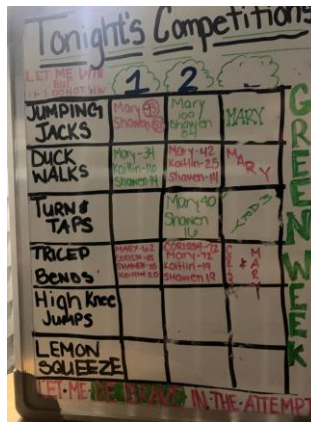 Tonight's Competitions
LET ME WIN
BUT
IF I DO NOT WIN
1
2
JUMPING
JACKS
Mary
Shawen
Mary
100
Shawen
64
MARY
DUCK
WALKS
Mary-34
Kaitlin-110
Shawen-14
Mary-42
Kaitlin-25
Shaven-14
MARY
TURN &
TAPS
Mary 40
Shawen
16
MARY
TRICEP
BENDS
MARY-62
Kaitlin 20
CORISSA-72
Mary-72
Kaitlin-19
Shawen 19
& MARY
High Knee
JUMPS
LEMON
SQUEEZE
GREEN WEEK
LET·ME·BE BRAVE IN·THE·ATTEMPT